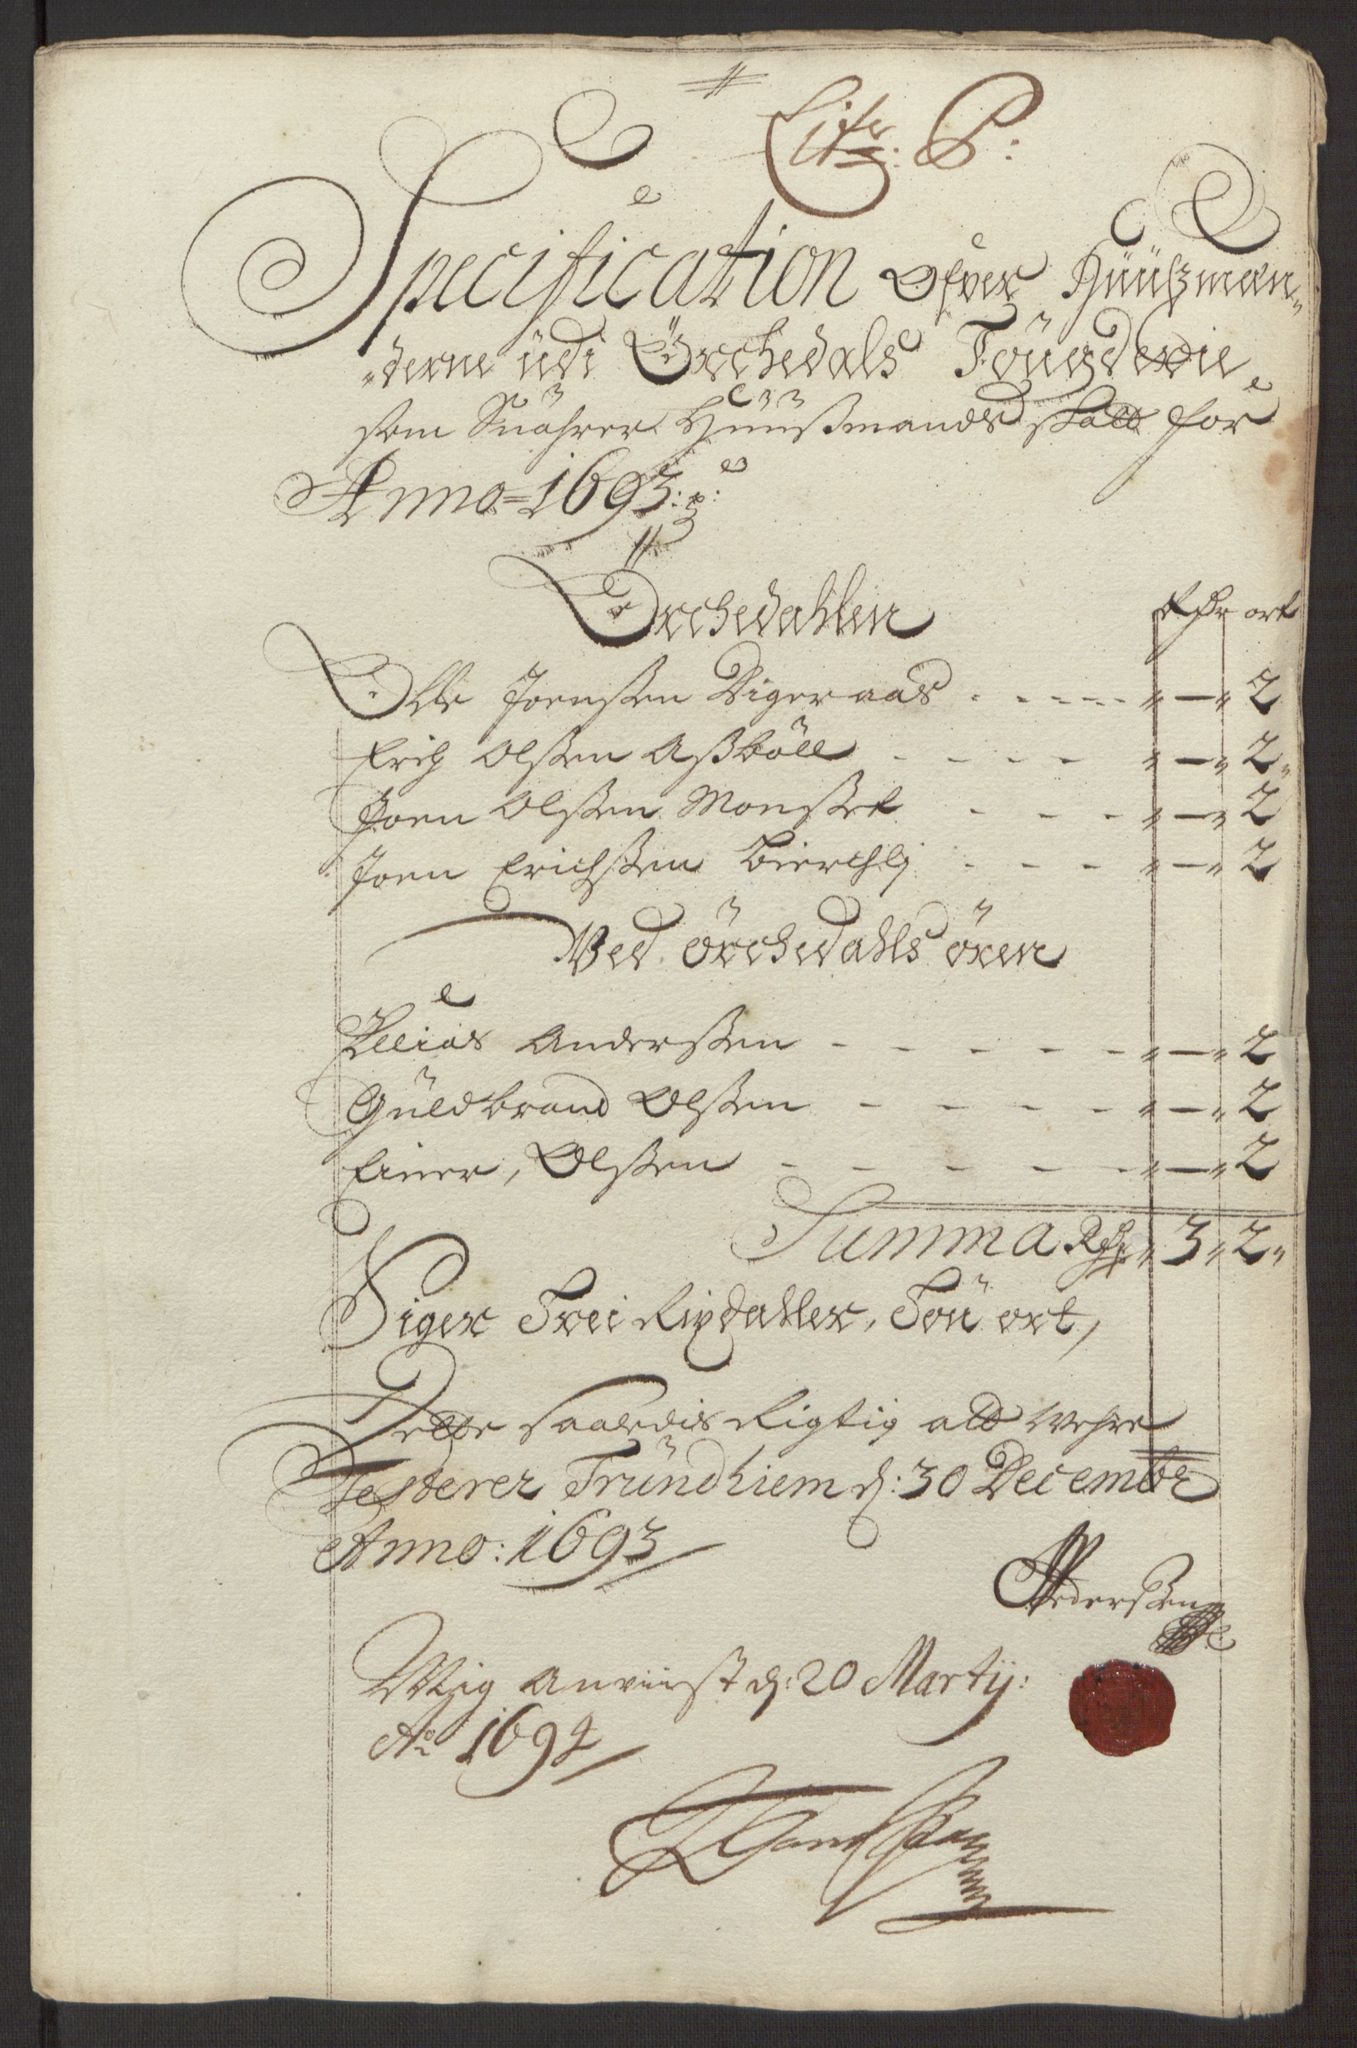 Litr: P:
Specification Ofver Huußman-
derne udi Örchedals Fougderie
som Suahrer Huußmands skatt for
Anno 1693:
Örchedahlen
Rdr ort
Olle Joenssen Digeraas - - 2
Erich Olssen Assböll - - 2
Joen Olssen Monsset - - 2
Joen Erichssen Bierchlj - - 2
Ved Örchedahls ören
Ellias Anderssen - - 2
Guldbrand Olssen - - 2
Einer, Olssen - - 2
Summa Rdr 3 2
Siger Trei Rixdahler, Tou ort,
Dette saaledis Rigtig att Wehre
Testerer Trundhiem d: 30 Decembr
Anno: 1693
Pederssen
Mig Anviist d: 20 Martij:
Ao 1694